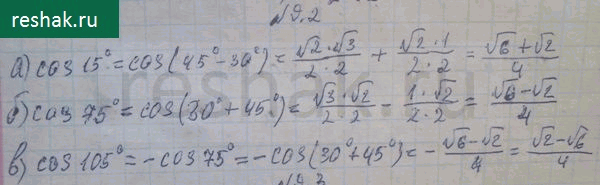 reshak.ru
№9.2
а) cos 15° = cos(45° - 30°) = √2·√3/2·2 + √2·1/2·2 = √6+√2/4
б) cos 75° = cos(30° + 45°) = √3·√2/2·2 - 1·√2/2·2 = √6-√2/4
в) cos 105° = -cos 75° = -cos(30°+45°) = - √6-√2/4 = √2-√6/4